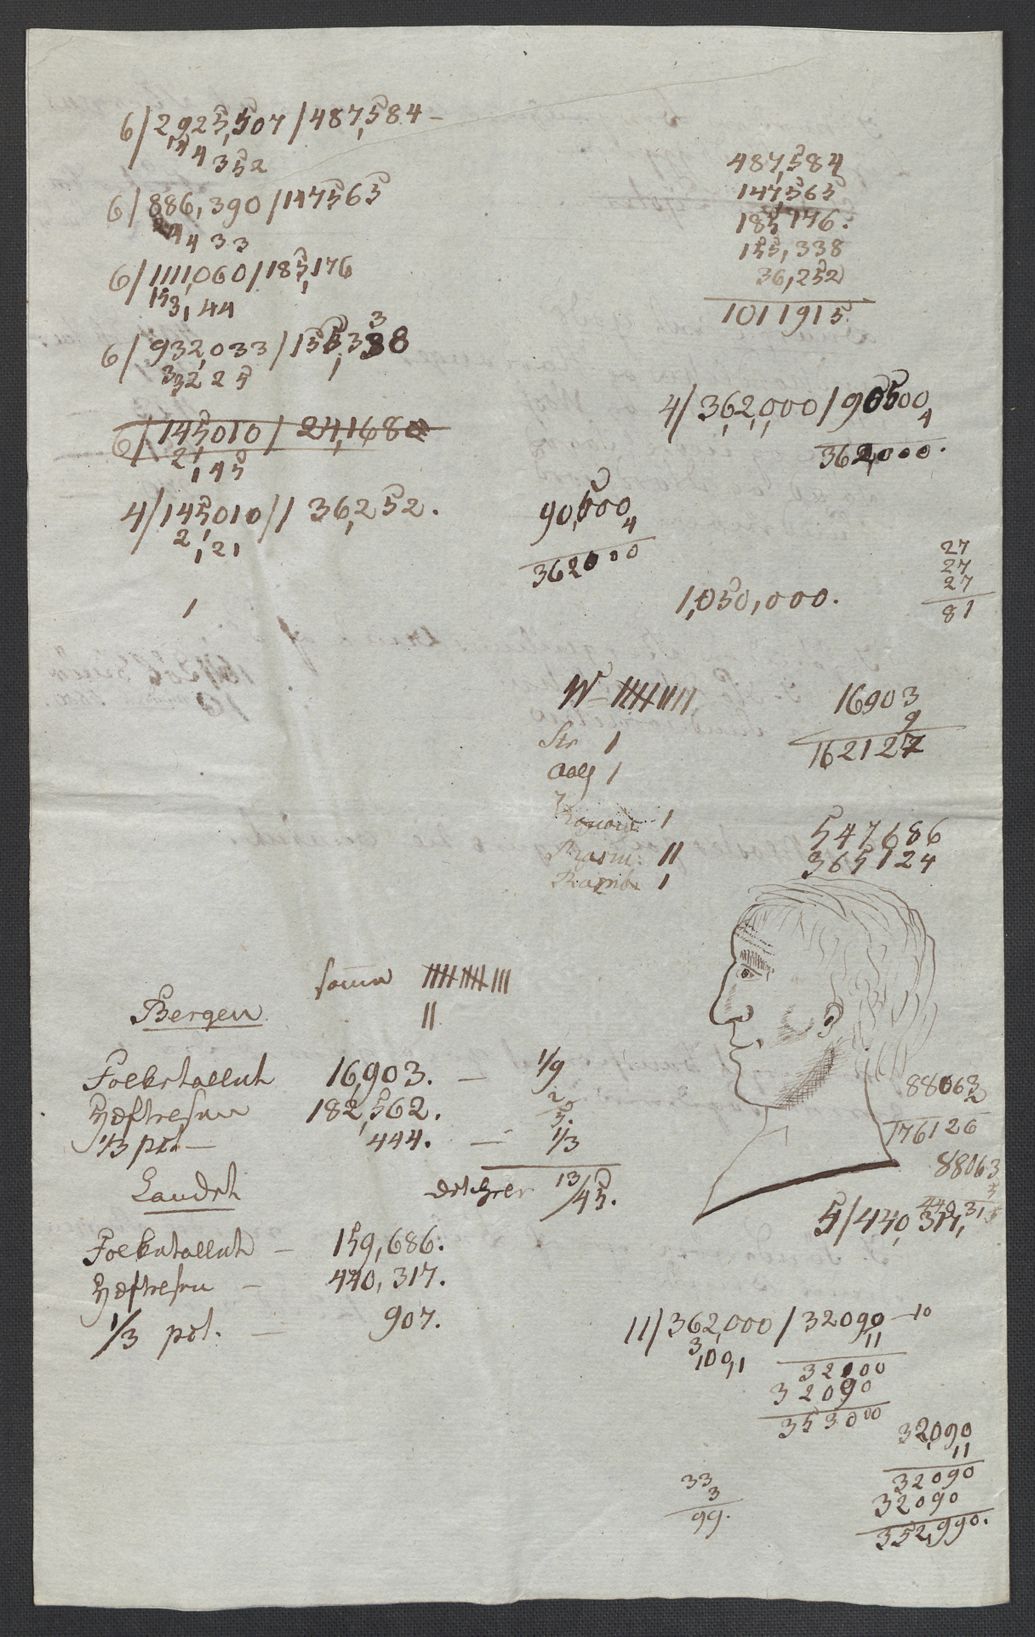 6/2,925,507/487,584-
14 4 352
6/886,390/147565
4 33
6/1111,060/185,176
153, 44
3
6/932,033/155,338
332 25
6/145010/24,168
21
145
4/145010/136,252.
2 1 21
1
487,584
147,565
185,176.
155,338
36,252
1011915.
4/362,000/90500
4
362,000.
90,500
4
362000
27
27
27
81
1,050,000.
W - 
Str 1
Aalg 1
Rasm: II
1
16903
9
162127
547686
365124
Sum
II
Bergen
Folketallet 16,903. - 1/9
182,562.
1/3 pct - 444. - 1/3
13/45.
Landet
Folketallet - 159,686.
- 440,317.
1/3 pct. - 907.
88063
2
176126
88063
5
5/440,317,
11/362,000/32090-10
11
3,100,1
32100
32090
353000
32,090
11
32090
32090
352,990.
33
3
99.